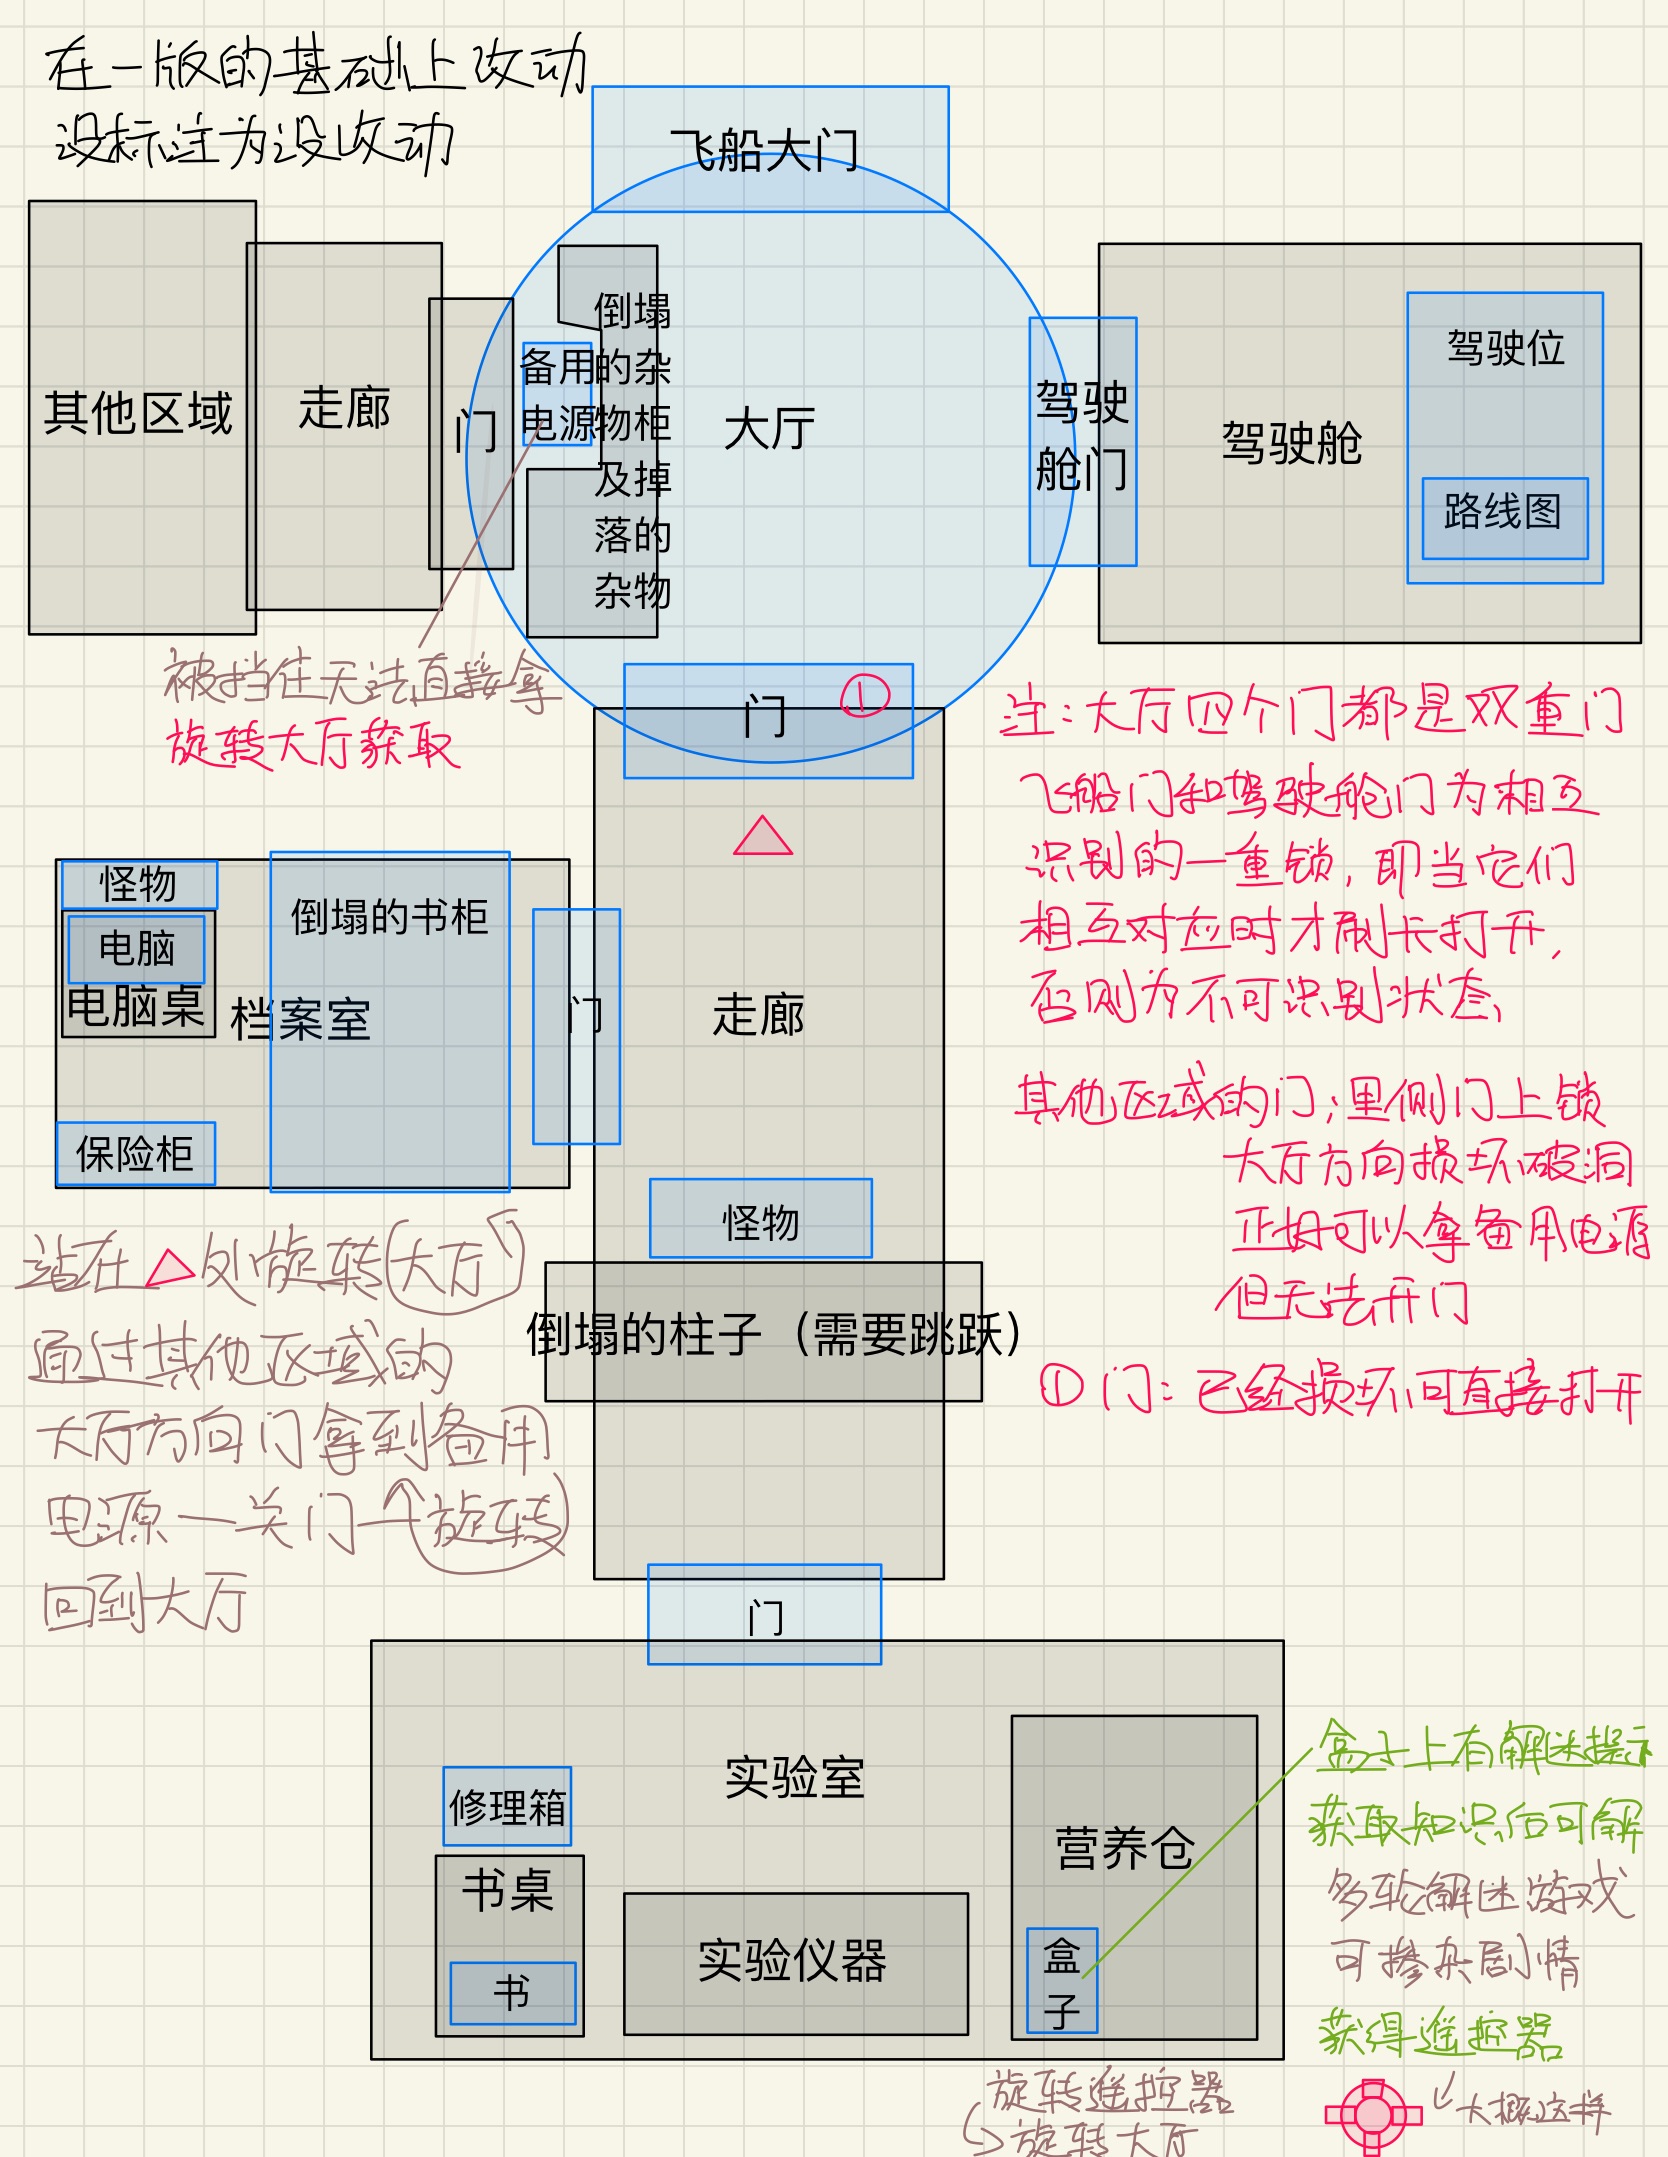 在一版的基础上改动
没标注为没改动
飞船大门
其他区域
走廊
门
备用
电源
倒塌
的杂
物柜
及掉
落的
杂物
大厅
驾驶
舱门
驾驶舱
驾驶位
路线图
被挡住无法直接拿
旋转大厅获取
门
①
注：大厅四个门都是双重门
飞船门和驾驶舱门为相互
识别的一重锁，即当它们
相互对应时才刷卡打开，
否则为不可识别状态、
其他区域的门；里侧门上锁
大厅方向损坏破洞
正好可以拿备用电源
但无法开门
①门：已经损坏可直接打开
怪物
电脑
电脑桌
档案室
倒塌的书柜
保险柜
门
走廊
怪物
倒塌的柱子（需要跳跃）
站在△处旋转大厅
通过其他区域的
大厅方向门拿到备用
电源一关门一旋转
回到大厅
门
实验室
修理箱
书桌
书
实验仪器
营养仓
盒
子
盒子上有解迷提示
获取知识后可解
多轮解迷游戏
可掺杂剧情
获得遥控器
大概这样
旋转遥控器
旋转大厅